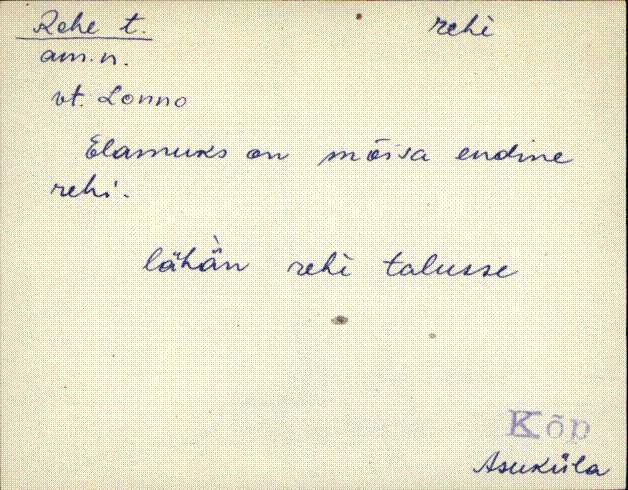 Rehe t. rehi
am.n.
vt. Lonno
Elamuks on mõisa endine
rehi.
lähä̀n rehì talusse
Kõp
Asuküla